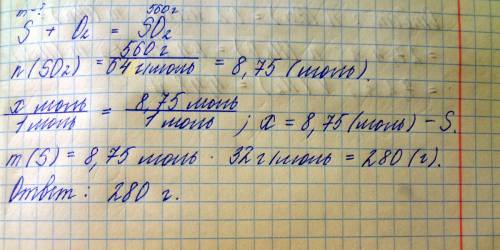 m-? 560 г
S + O₂ = SO₂
n(SO₂) = 560 г / 64 г/моль = 8,75 (моль).
x моль / 1 моль = 8,75 моль / 1 моль ; x = 8,75 (моль) – S.
m(S) = 8,75 моль · 32 г/моль = 280 (г).
Ответ: 280 г.